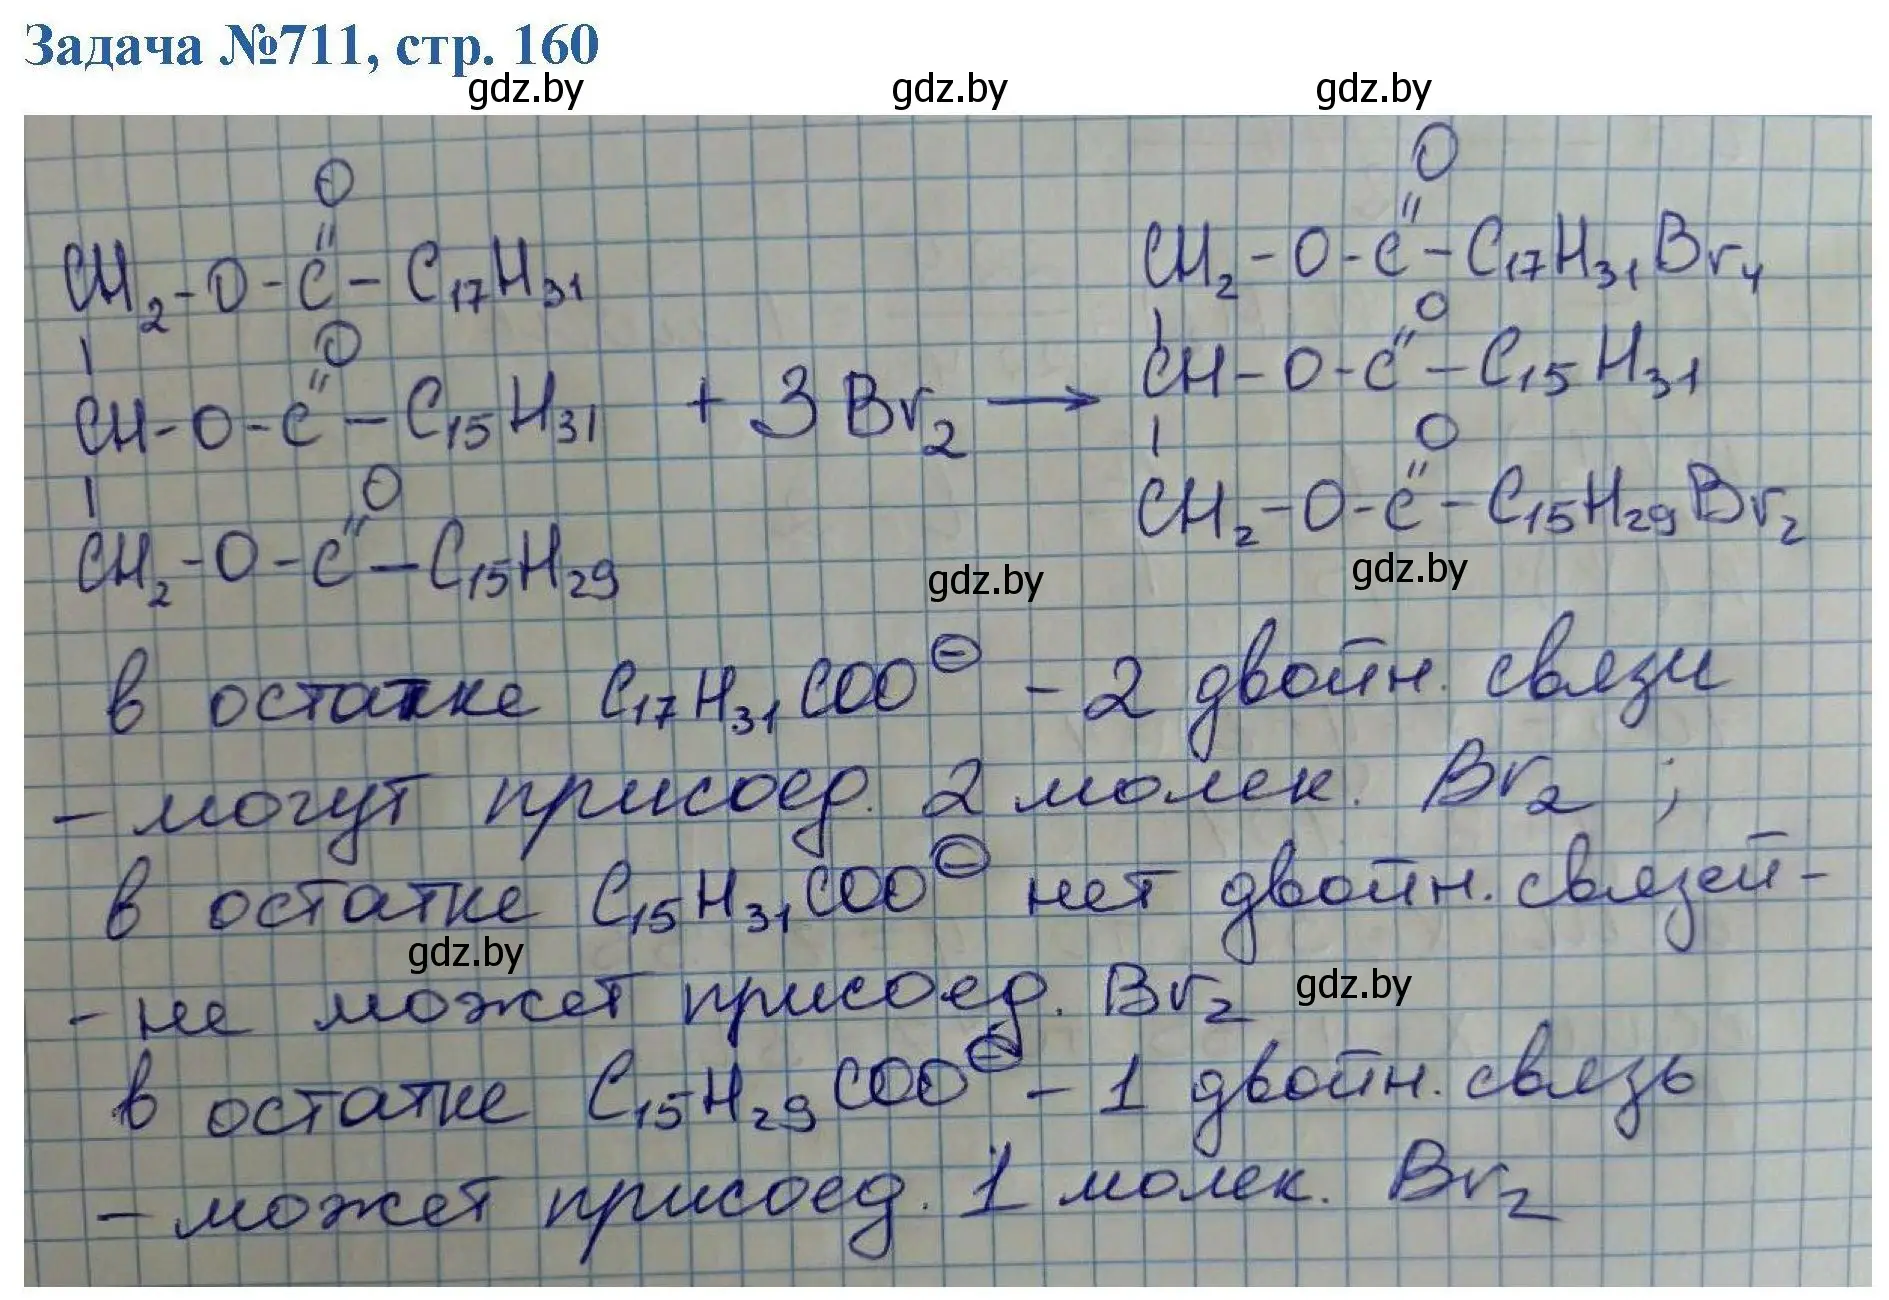 Задача №711, стр. 160
gdz.by gdz.by gdz.by
O O
CH₂-O-C-C₁₇H₃₁ CH₂-O-C-C₁₇H₃₁Br₄
O O
CH-O-C-C₁₅H₃₁ + 3Br₂ → CH-O-C-C₁₅H₃₁
O O
CH₂-O-C-C₁₅H₂₉ CH₂-O-C-C₁₅H₂₉Br₂
gdz.by gdz.by
в остатке C₁₇H₃₁COO⊖ - 2 двойн. связи
- могут присоед. 2 молек. Br₂ ;
в остатке C₁₅H₃₁COO⊖ нет двойн. связей-
gdz.by
- не может присоед. Br₂ gdz.by
в остатке C₁₅H₂₉COO⊖ - 1 двойн. связь
- может присоед. 1 молек. Br₂